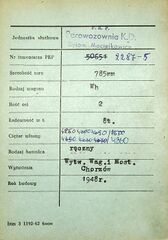 P.K.P.
Jednostka służbowa Parowozownia K.D.
Nr inwentarza PKP 50651 2287-5
Szerokość toru 785mm
Rodzaj wagonu Wh
Ilość osi 2
Ładowność w t. 8t.
Ciężar własny
Rodzaj hamulca ręczny
Wytwórnia Wytw. Wag.i Most. Chorzów
Rok budowy 1948r.